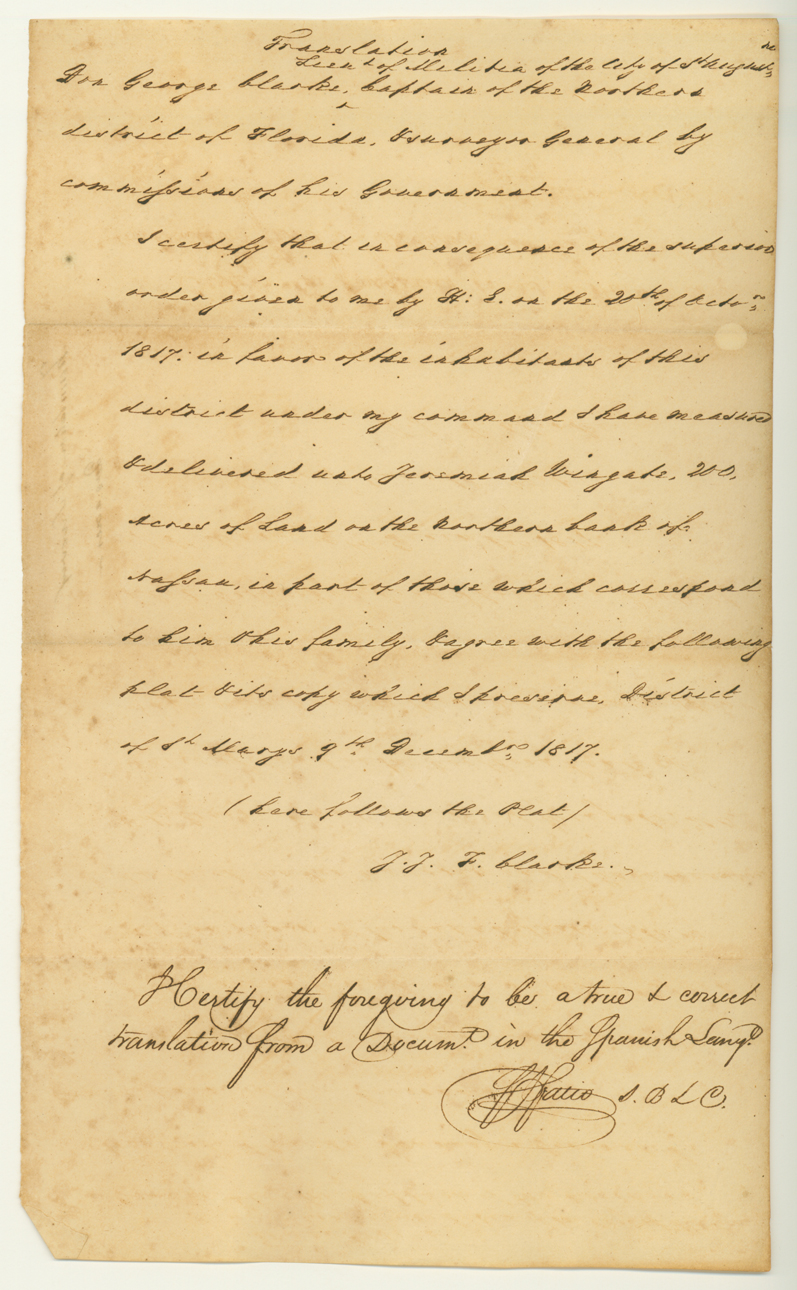 Translation
Lieut of Militia of the City of St Augustine
Don George Clarke, Captain of the Northern
district of Florida, & surveyor General by
commissions of his Government.
I certify that in consequence of the superior
order given to me by H: E. on the 20th of Octor
1817: in favor of the inhabitants of this
district under my command I have measured
& delivered unto Jeremiah Wingate, 200,
Acres of Land on the Northern bank of
Nassau, in part of those which correspond
to him & his family, & agree with the following
plat & its copy which I preserve, District
of St Marys 9th Decembre 1817.
(here follows the Plat)
J. J. F. Clarke.
I Certify the foregoing to be a true & correct
translation from a Documt in the Spanish Lange
F J Fatio S. B L C.